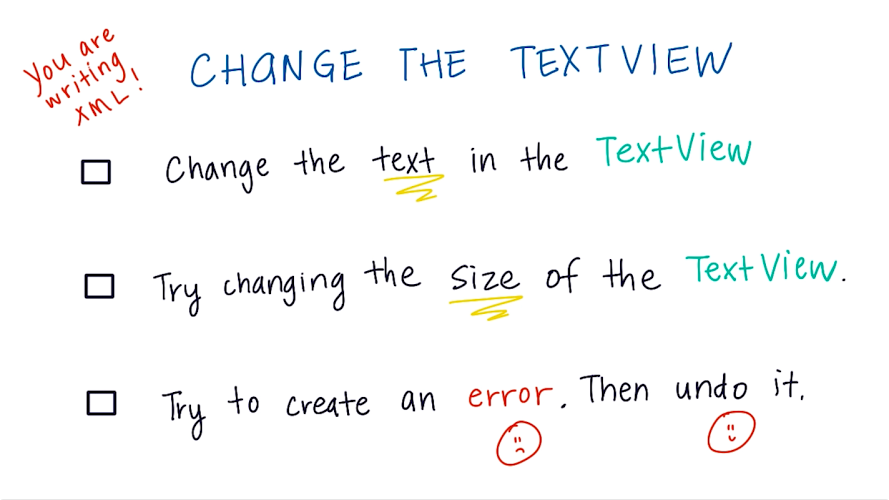 You are
writing
XML!
CHANGE THE TEXTVIEW
Change the text in the TextView
Try changing the size of the TextView.
Try to create an error. Then undo it.